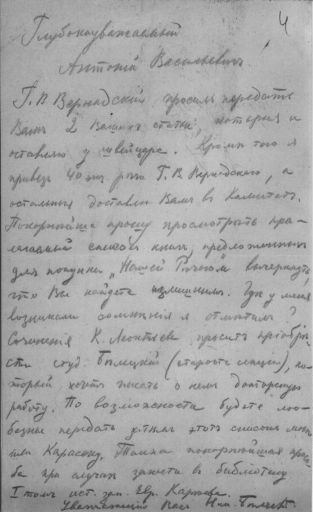 4
Глубокоуважаемый
Антоній Васильевичъ!
Г. В. Вернадскій просилъ передать
Вамъ 2 Вашихъ статьи, которыя и
оставляю у швейцара. Кромѣ того я
привезъ 40 экз. Г. В. Вернадскаго, а
остальные доставлю Вамъ въ Комитетъ.
Покорнѣйше прошу просмотрѣть при-
лагаемый списокъ книгъ, предложенныхъ
для покупки „Нашей Рѣчью" вычеркнуть,
что Вы найдете излишнимъ. Гдѣ у меня
возникали сомнѣнія я отмѣтилъ ?
Сочиненія К. Леонтьева проситъ пріобрѣ-
сти студ. (староста секціи), ко-
торый хочетъ писать о немъ докторскую
работу. По возможности будьте лю-
безны передать этотъ списокъ мнѣ
или Карасеку. Также покорнѣйшая прось-
ба при случаѣ занести въ библіотеку
I томъ ист. зап. Евр. Карѣева.
Уважающій Васъ Ник.